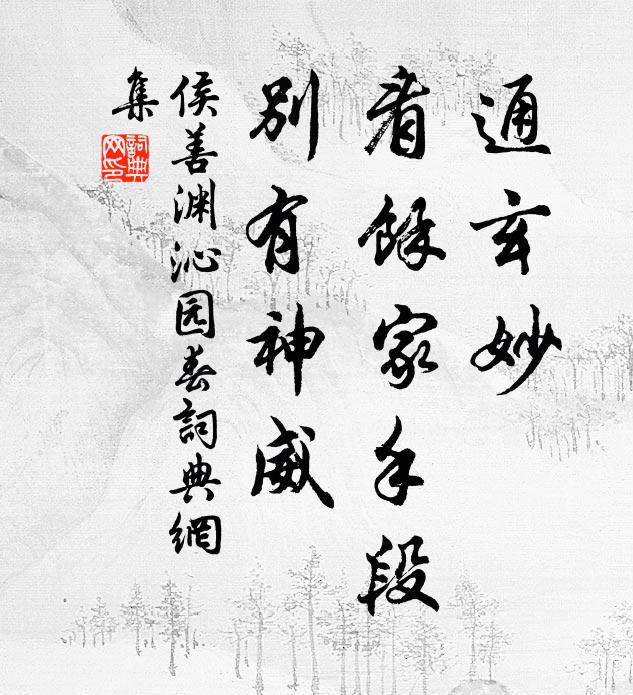 通玄妙
看餘家手段
別有神威
侯善渊沁园春詞典網
集
詞典
网印